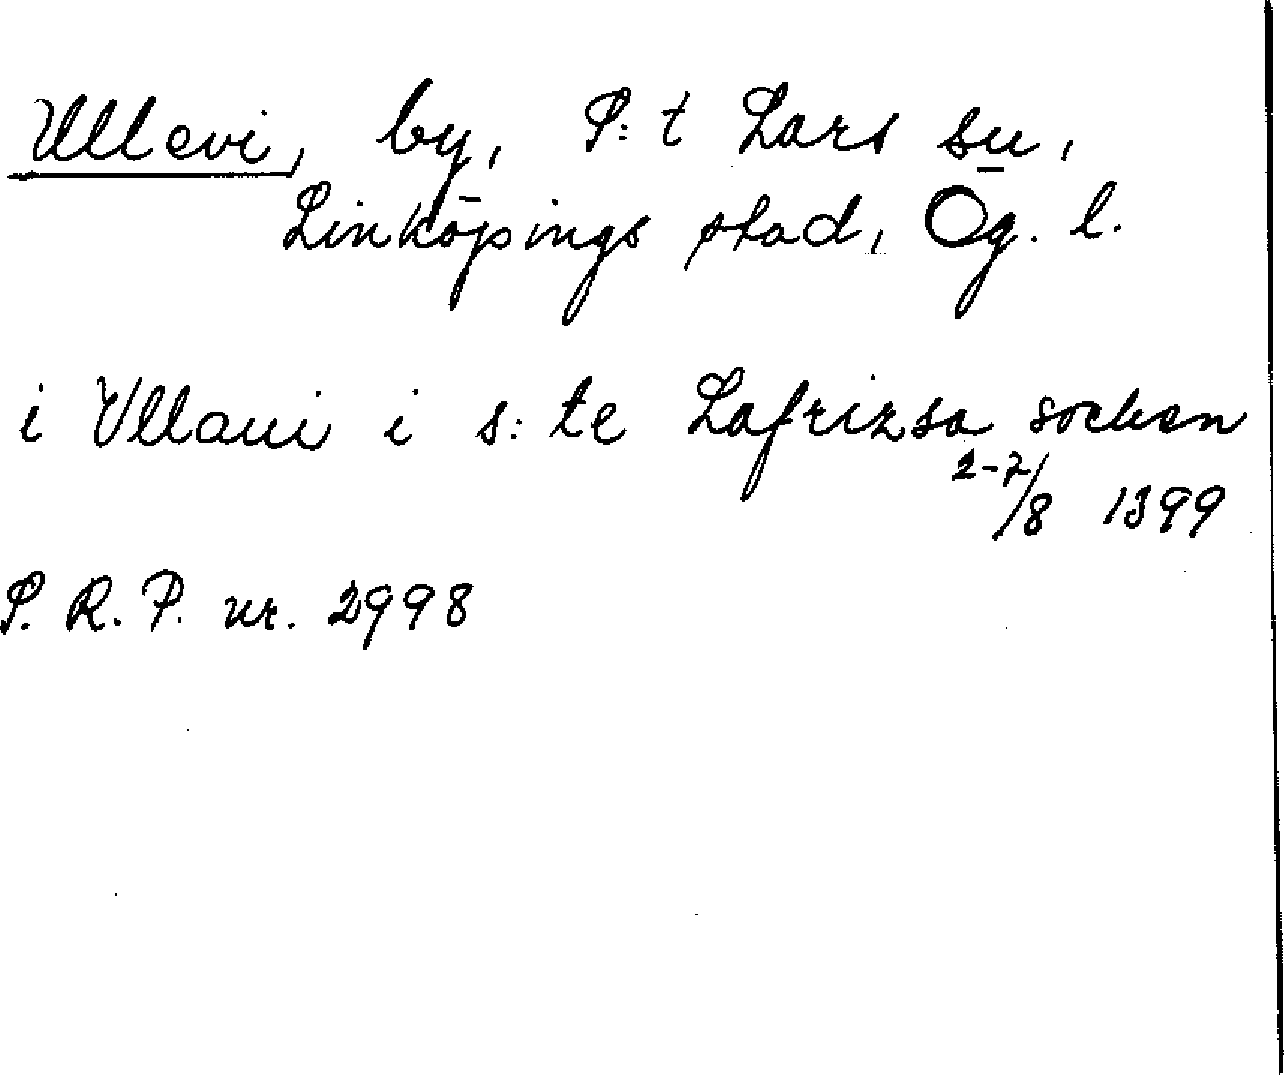 Ullevi, by, S:t Lars sn,
Linköpings stad, Ög. l.
i Vllaui i s: te Lafrizsa socken
2-7/8 1399
S. R. P. nr. 2998